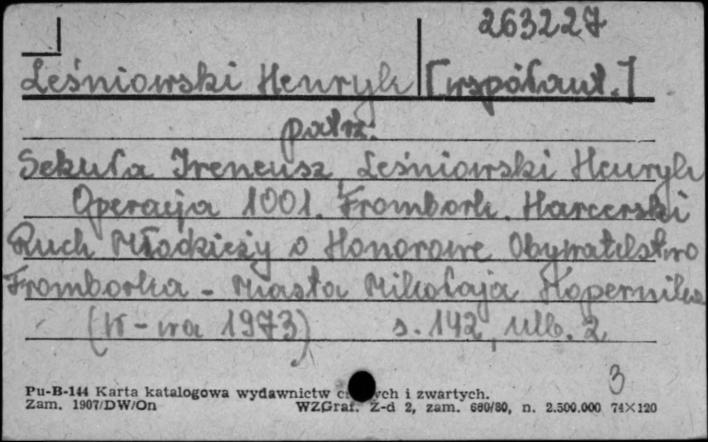 263227
Leśniowski Henryk [współaut.]
patrz:
Sekuła Ireneusz, Leśniowski Henryk
Operacja 1001. Frombork. Harcerski
Ruch Młodzieży o Honorowe Obywatelstwo
Fromborka - Miasta Mikołaja Kopernika
(W-wa 1973) s. 142, nlb. 2
3
Pu-B-144 Karta katalogowa wydawnictw ciągłych i zwartych.
Zam. 1907/DW/On WZGraf. Z-d 2, zam. 680/80, n. 2.500.000 74×120